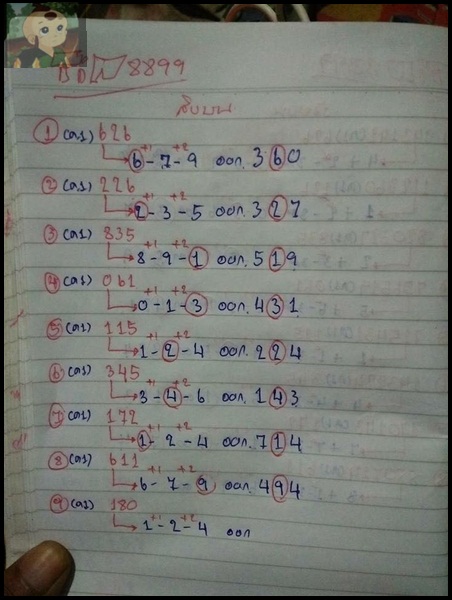 8899
สิบบน
① (ล่าง) 626
+1 +2
6-7-9 ออก. 360
② (ล่าง) 226
+1 +2
2-3-5 ออก. 327
③ (ล่าง) 835
+1 +2
8-9-1 ออก. 519
④ (ล่าง) 061
+1 +2
0-1-3 ออก. 431
⑤ (ล่าง) 115
+1 +2
1-2-4 ออก. 224
⑥ (ล่าง) 345
+1 +2
3-4-6 ออก. 143
⑦ (ล่าง) 172
+1 +2
1-2-4 ออก. 714
⑧ (ล่าง) 611
+1 +2
6-7-9 ออก. 494
⑨ (ล่าง) 180
+1 +2
1-2-4 ออก